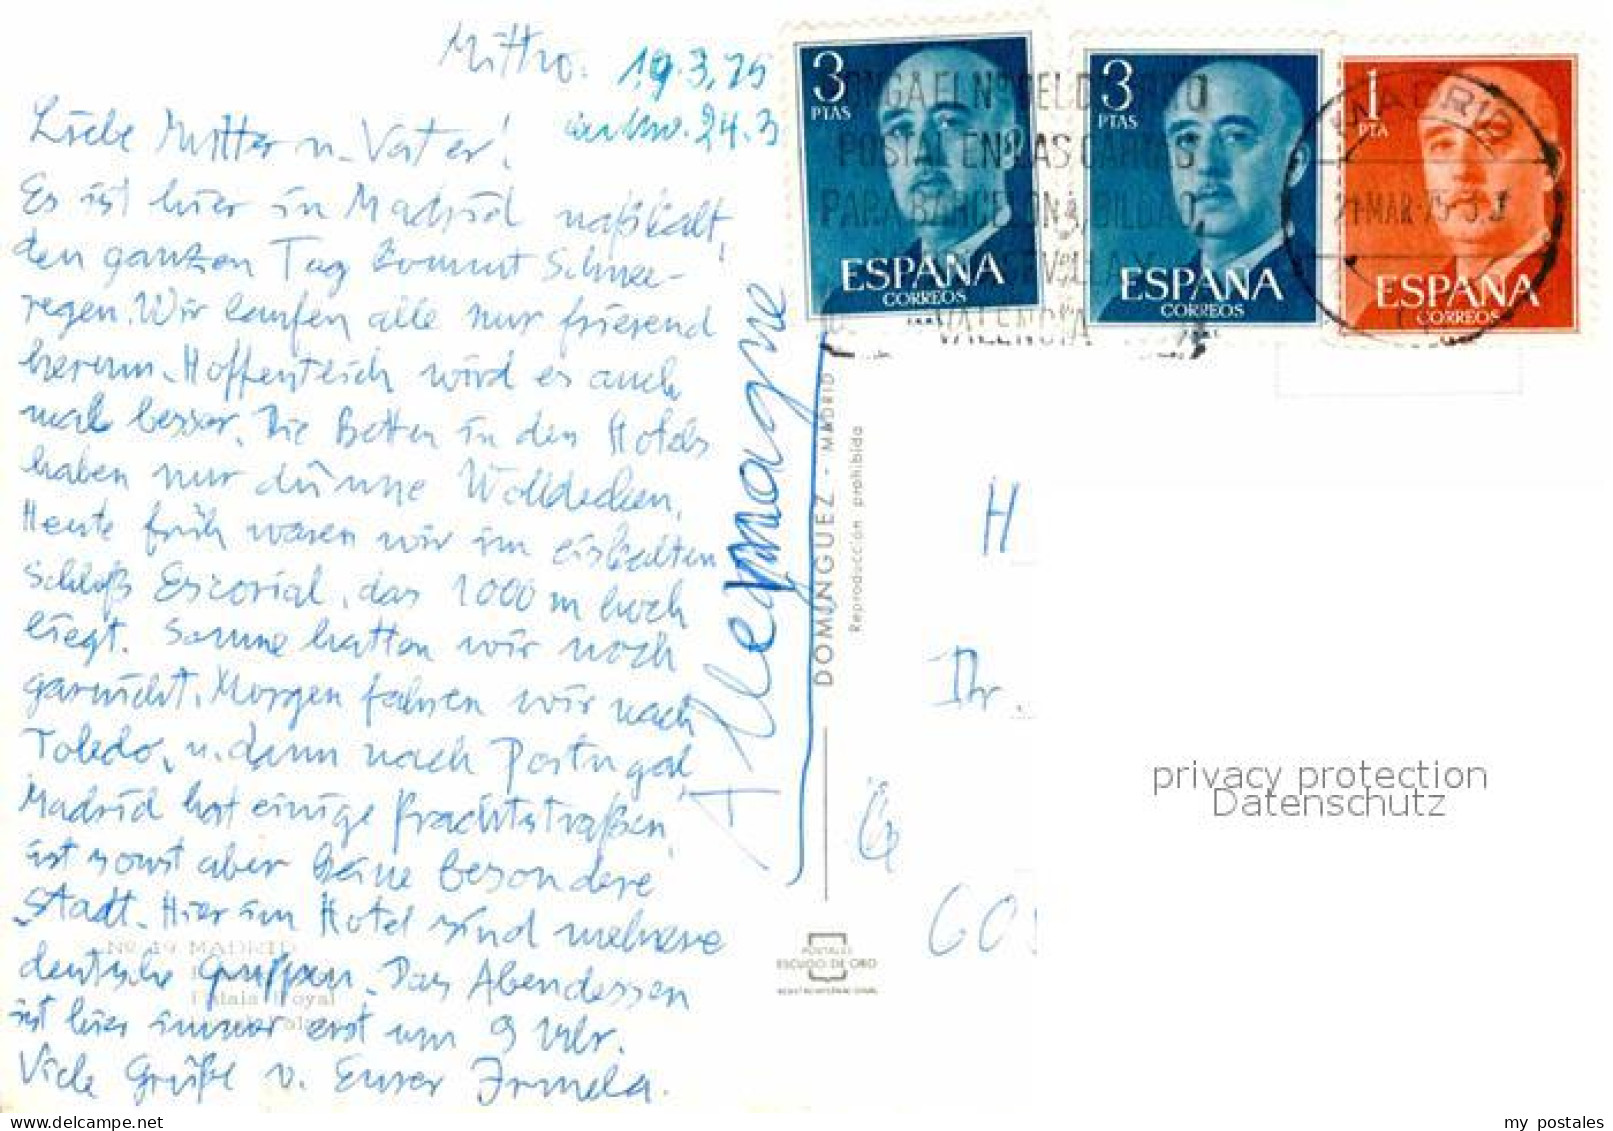 Mittwo. 19.3.75
ankw. 24.3
Liebe Mutter u. Vater!
Es ist hier in Madrid naßkalt,
den ganzen Tag kommt Schnee-
regen. Wir laufen alle nur frierend
herum. Hoffentlich wird es auch
mal besser. Die Betten in den Hotels
haben nur dünne Wolldecken.
Heute früh waren wir im eiskalten
Schloß Escorial, das 1000 m hoch
liegt. Sonne hatten wir noch
garnicht. Morgen fahren wir nach
Toledo, u. dann nach Portugal.
Madrid hat einige Prachtstraßen,
ist sonst aber keine besondere
Stadt. Hier im Hotel sind mehrere
deutsche Gruppen. Das Abendessen
ist hier immer erst um 9 Uhr.
Viele Grüße v. Eurer Irmela.
Nº 19 MADRID
Palais Royal
Allemagne
DOMINGUEZ - MADRID
Reproducción prohibida
POSTALES
ESCUDO DE ORO
REGISTRO INTERNACIONAL
3 PTAS
ESPAÑA
CORREOS
3 PTAS
ESPAÑA
CORREOS
1 PTA
ESPAÑA
CORREOS
PONGA EL Nº DEL DISTRITO
POSTAL EN LAS CARTAS
PARA BARCELONA, BILBAO,
VALENCIA
MADRID
21 MAR 75
H
Ihr
60
privacy protection
Datenschutz
my postales